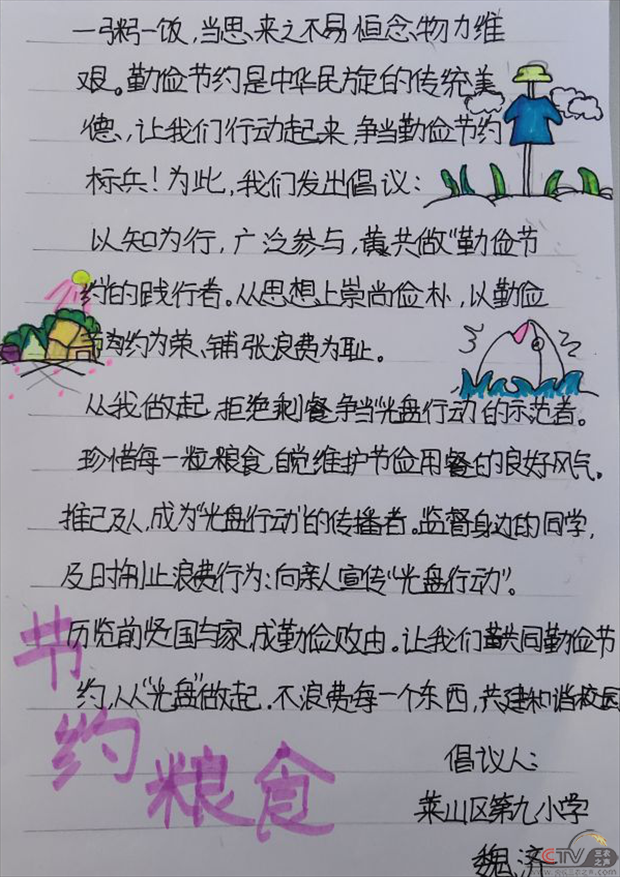 一粥一饭，当思来之不易恒念物力维
艰。勤俭节约是中华民族的传统美
德，让我们行动起来，争当勤俭节约
标兵！为此，我们发出倡议：
以知为行，广泛参与，共做“勤俭节
约”的践行者。从思想上崇尚俭朴，以勤俭
节约为荣、铺张浪费为耻。
从我做起，拒绝剩餐争当“光盘行动”的示范者。
珍惜每一粒粮食，自觉维护节俭用餐的良好风气。
推己及人，成为“光盘行动”的传播者。监督身边的同学，
及时制止浪费行为；向亲人宣传“光盘行动”。
历览前贤国与家，成勤俭败由。让我们共同勤俭节
约，从“光盘”做起，不浪费每一个东西，共建和谐校园
节约粮食
倡议人：
莱山区第九小学
魏济
CCTV 三农之声